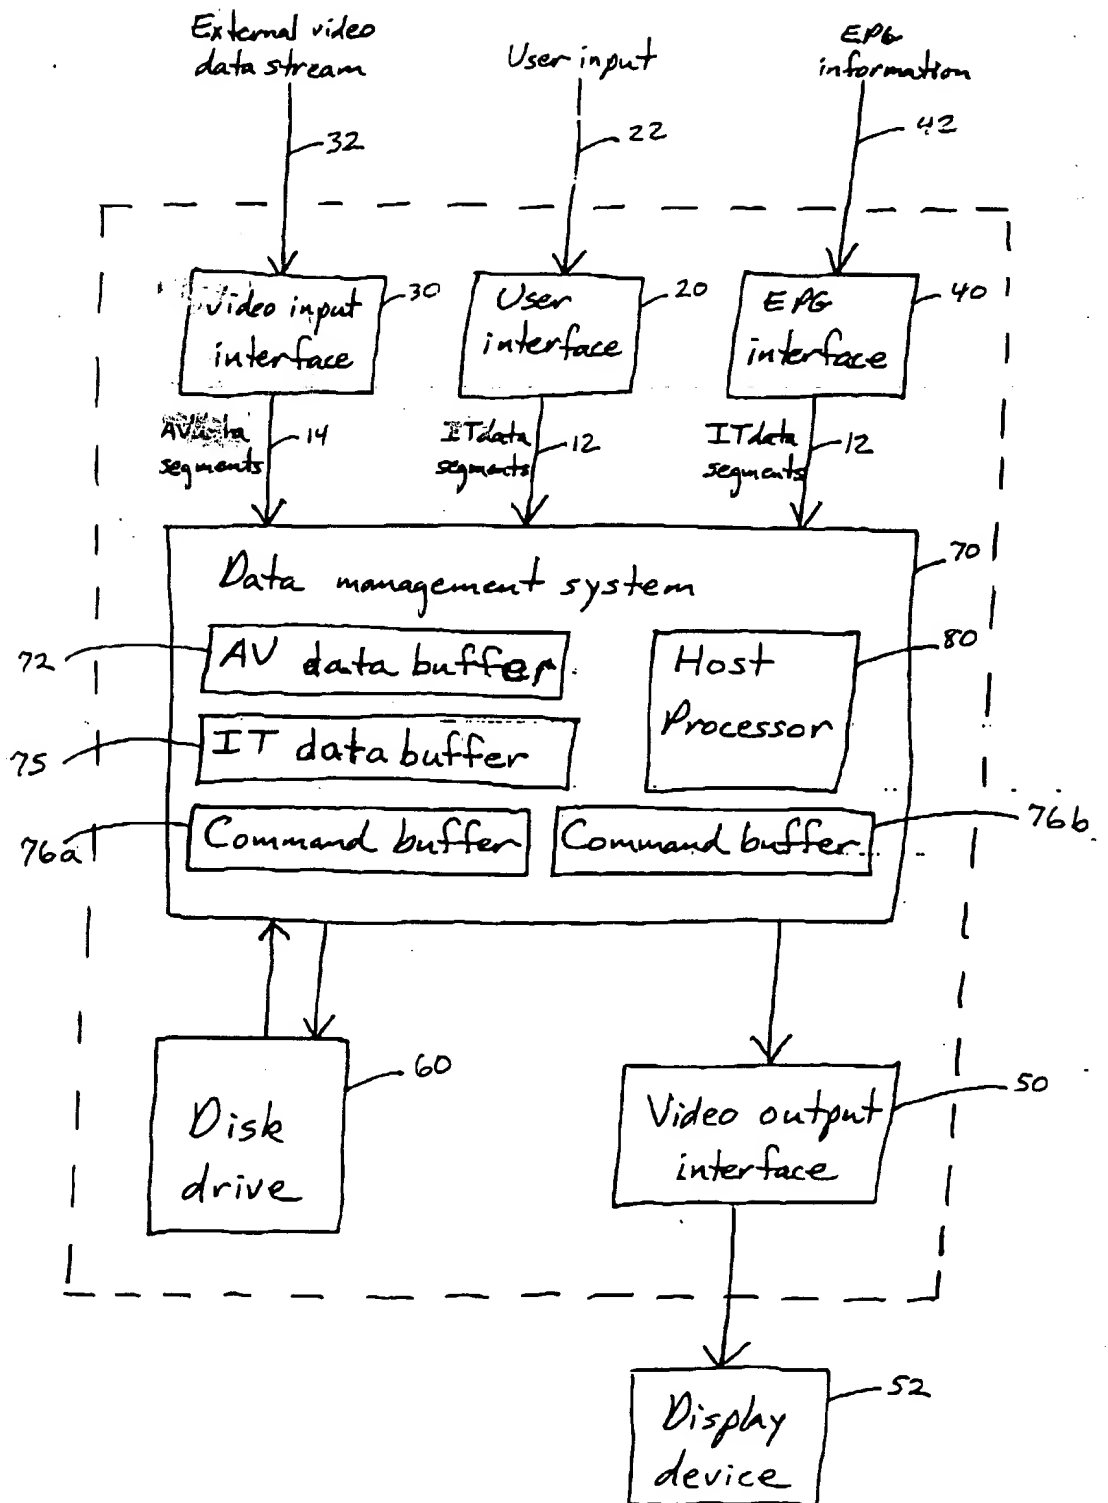 External video
data stream
User input
EPG
information
32
22
42
Video input
interface
30
User
interface
20
EPG
interface
40
AV data
segments
14
IT data
segments
12
IT data
segments
12
Data management system
70
72
AV data buffer
Host
Processor
80
75
IT data buffer
76a
Command buffer
Command buffer
76b
Disk
drive
60
Video output
interface
50
Display
device
52